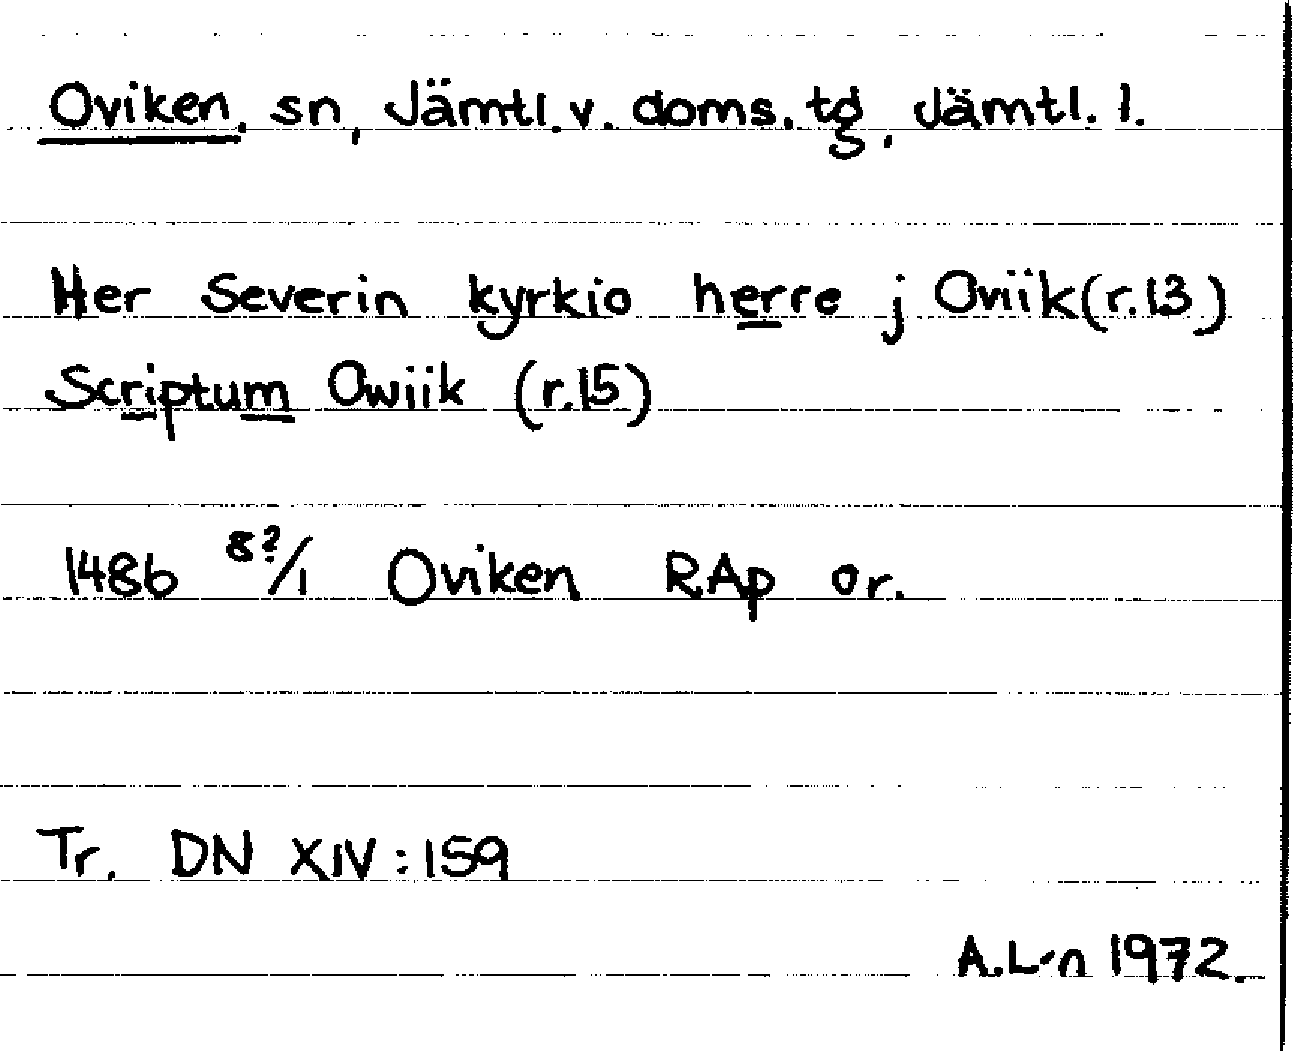 Oviken, sn, Jämtl. v. doms. tg, Jämtl. l.
Her Severin kyrkio herre j Oviik (r.13)
Scriptum Owiik (r.15)
1486 8?/1 Oviken RAp or.
Tr. DN XIV:159
A.L-n 1972.